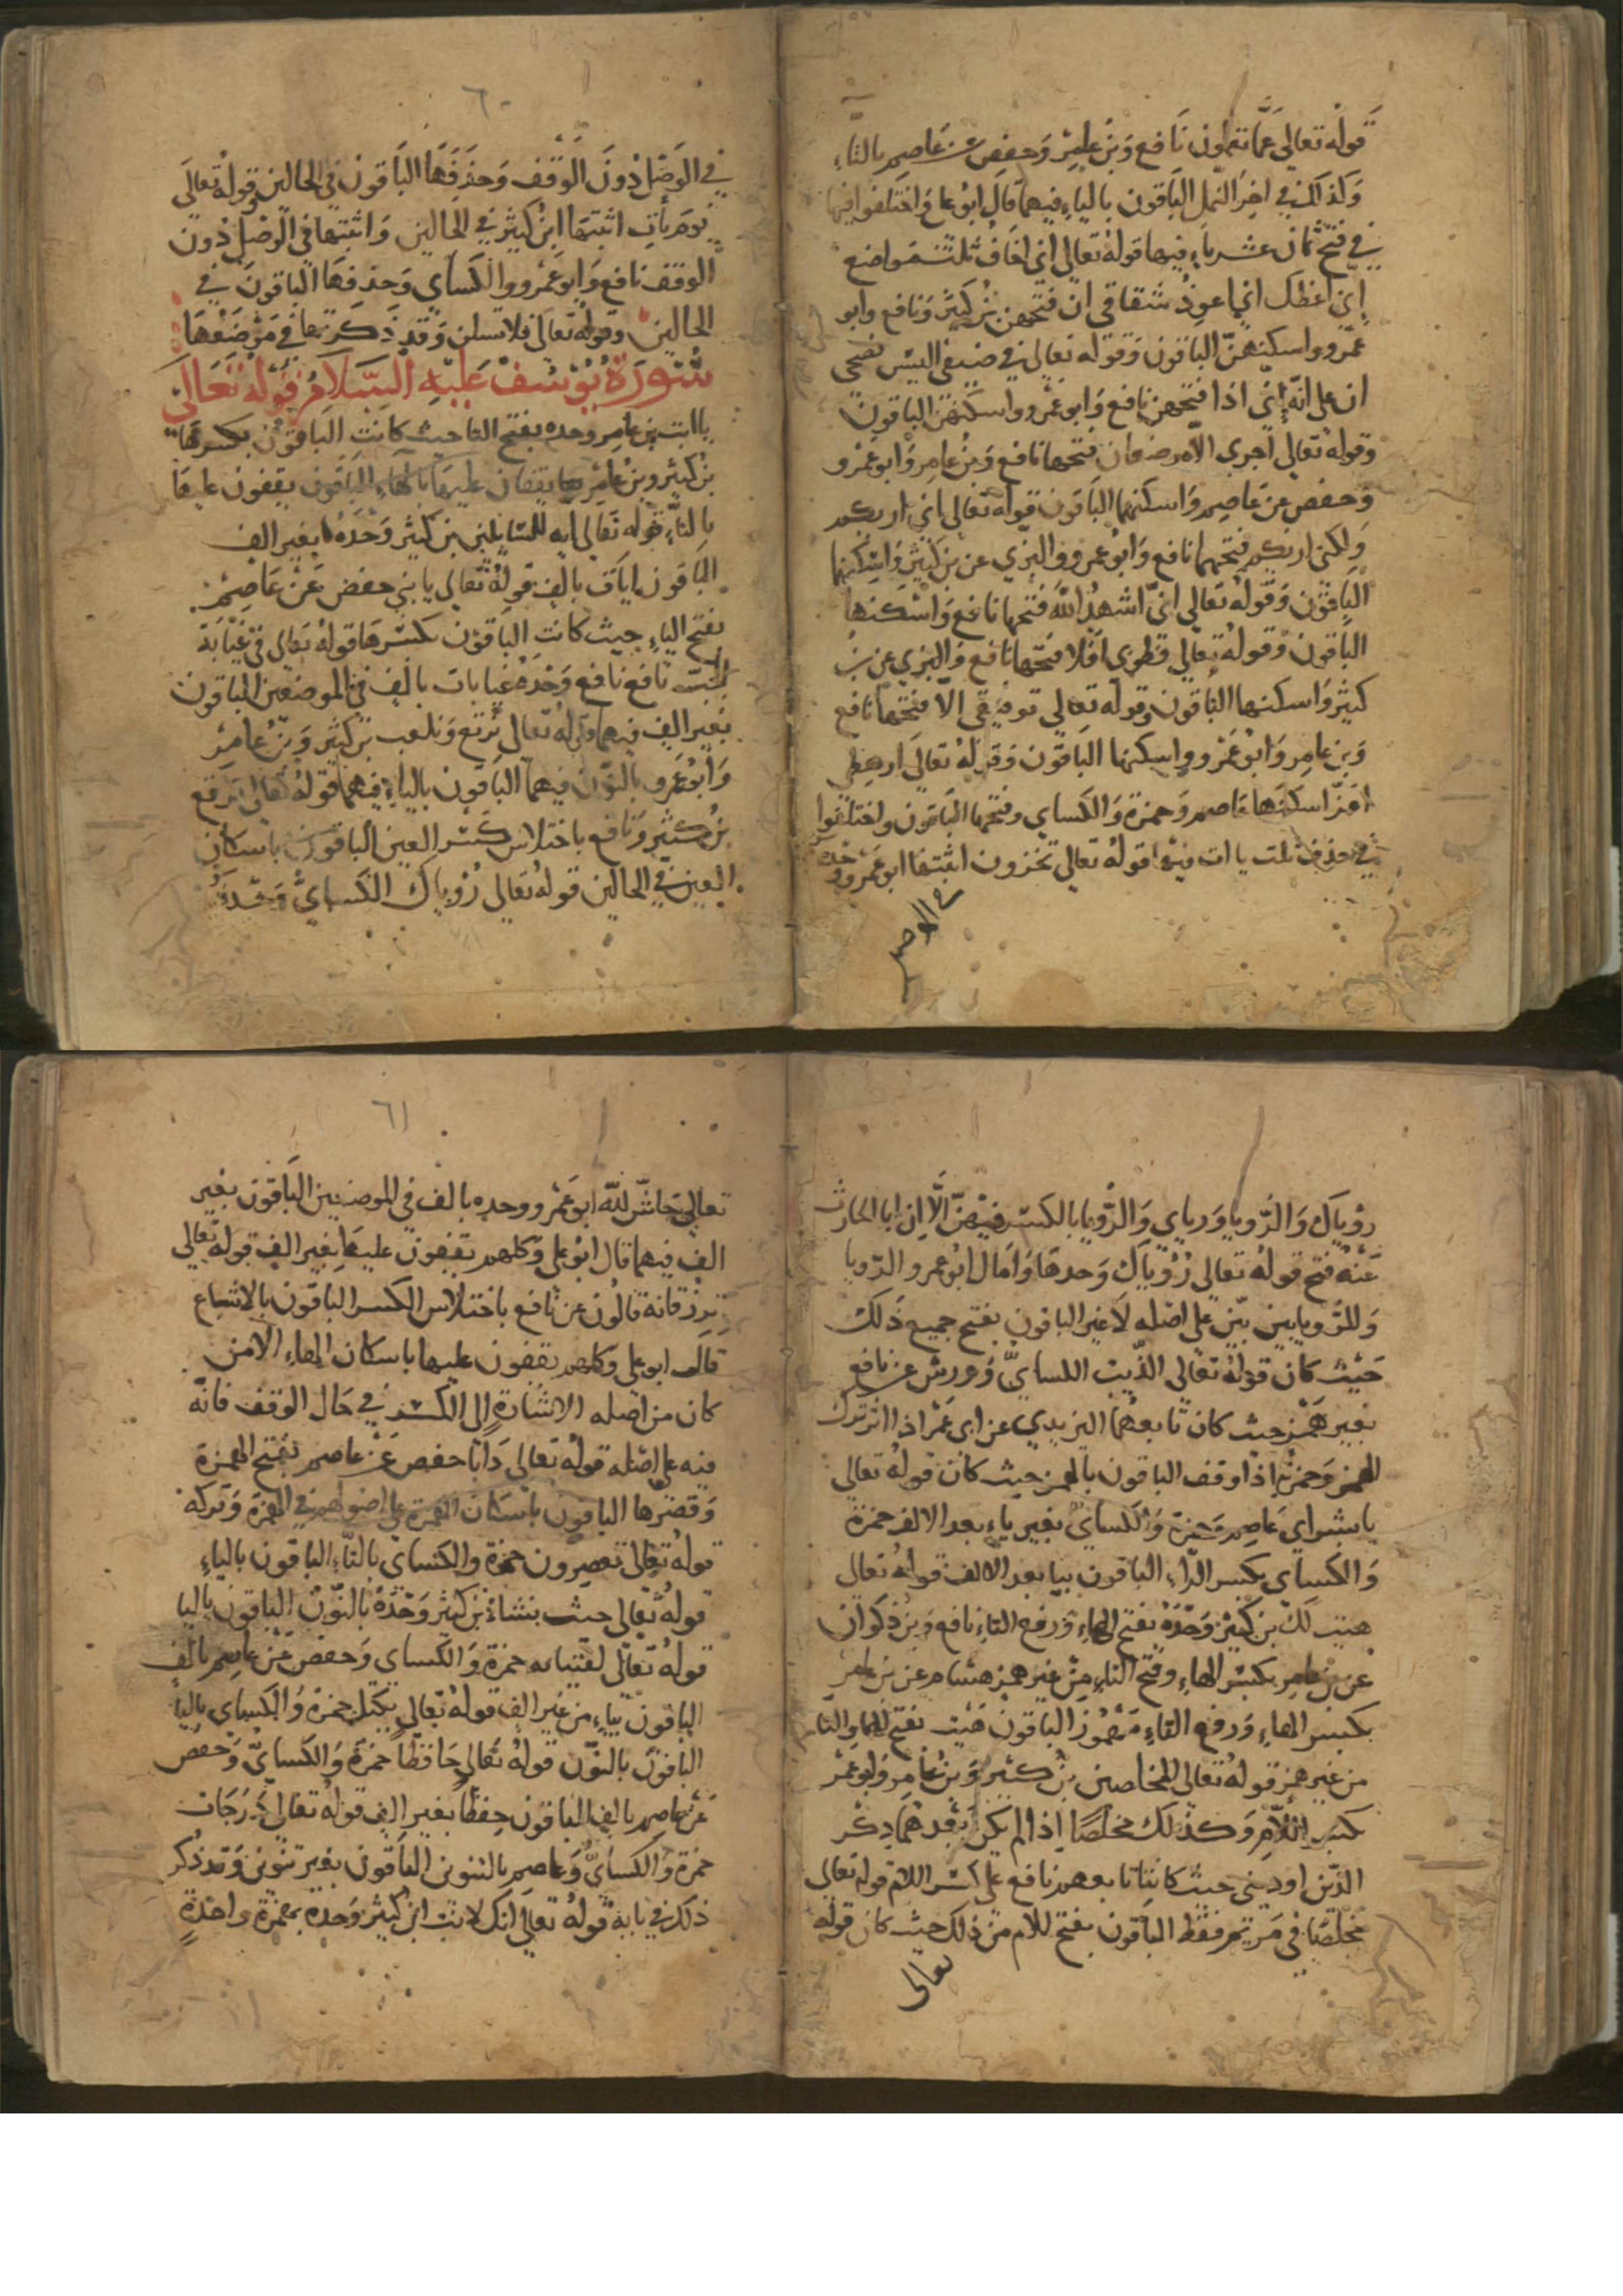 قوله تعالى عَمَّا تعملون نافع وبن عامر وحفص عن عاصم بالتاء
وكذلك في اخر النمل الباقون بالياء فيهما قال ابو علي واختلفوا فيها
في فتح ثمان عشر ياء فيها قوله تعالى اني اخاف ثلث مواضع
اني اعظك اني اعوذ شقاقي ان فتحهن بن كثير ونافع وابو
عمرو واسكنهن الباقون وقوله تعالى في ضيفي اليس نصحي
ان على انه اني اذا فتحهن نافع وابو عمرو واسكنهن الباقون
وقوله تعالى اجري الا موضعان فتحها نافع وبن عامر وابو عمرو
وحفص عن عاصم واسكنهما الباقون قوله تعالى اني اريكم
ولكني اريكم فتحهما نافع وابو عمرو والبزي عن بن كثير واسكنهما
الباقون وقوله تعالى اني اشهد الله فتحها نافع واسكنها
الباقون وقوله تعالى فطرني افلا فتحها نافع والبزي عن بن
كثير واسكنها الباقون وقوله تعالى توفيقي الا فتحها نافع
وبن عامر وابو عمرو واسكنها الباقون وقوله تعالى ارهطي
اعز اسكنها عاصم وحمزة والكساي وفتحها الباقون واختلفوا
في حذف ثلث ياات فيها قوله تعالى تخزون اثبتها ابو عمرو وحده
في الوصل
٦٠
في الوصل دون الوقف وحذفها الباقون في الحالين قوله تعالى
يوم يأت اثبتها ابن كثير في الحالين واثبتها في الوصل دون
الوقف نافع وابو عمرو والكساي وحذفها الباقون في
الحالين وقوله تعالى فلا تسلن وقد ذكرتها في موضعها
سورة يوسف عليه السلام قوله تعالى
يا ابت بن عامر وحده بفتح التا حيث كانت الباقون بكسرها
بن كثير وبن عامر يقفان عليها بالهاء الباقون يقفون عليها
بالتاء قوله تعالى ايه للسايلين بن كثير وحده بغير الف
الباقون ايات بالف قوله تعالى يا بني حفص عن عاصم
بفتح الياء حيث كانت الباقون بكسرها قوله تعالى في غيابة
الجب نافع نافع وحده غيابات بالف في الموضعين الباقون
بغير الف فيهما قوله تعالى نرتع ونلعب بن كثير وبن عامر
وابو عمرو بالنون فيهما الباقون بالياء فيهما قوله تعالى نرتع
بن كثير ونافع باختلاس كسر العين الباقون باسكان
العين في الحالين قوله تعالى رؤياك الكساي وحده
رؤياك والرويا وروياي والرؤيا بالكسر فيهن الا ان ابا الحارث
عنه فتح قوله تعالى رؤياك وحدها وامال ابو عمرو الرويا
وللرويا بين بين على اصله لا غير الباقون بفتح جميع ذلك
حيث كان قوله تعالى الذيب الكساي وورش عن نافع
بغير همز حيث كان تابعهما اليزيدي عن ابي عمر اذا اثر ترك
الهمز وحمزة اذا وقف الباقون بالهمز حيث كان قوله تعالى
يا بشراي عاصم وحمزة والكساي بغير ياء بعد الالف حمزة
والكساي بكسر الراء الباقون بيا بعد الالف قوله تعالى
هيت لك بن كثير وحده بفتح الهاء ورفع التاء نافع وبن ذكوان
عن بن عامر بكسر الهاء وفتح التاء من غير همز هشام عن بن عامر
بكسر الهاء ورفع التاء مهموز الباقون هيت بفتح الهاء والتا
من غير همز قوله تعالى المخلصين بن كثير وبن عامر وابو عمر
بكسر اللام وكذلك مخلصا اذا لم يكن بعدهما ذكر
الدين او ديني حيث كانتا تابعهم نافع على كسر اللام قوله تعالى
مخلصا في مريم فقط الباقون بفتح اللام من ذلك حيث كان قوله
تعالى
٦١
تعالى حاش لله ابو عمرو وحده بالف في الموضعين الباقون بغير
الف فيهما قال ابو علي وكلهم يقفون عليها بغير الف قوله تعالى
ترزقانه قالون عن نافع باختلاس الكسر الباقون بالاشباع
قال ابو علي وكلهم يقفون عليها باسكان الهاء الا من
كان من اصله الاشارة الى الكسر في حال الوقف فانه
فيه على اصله قوله تعالى دابا حفص عن عاصم بفتح الهمزة
وقصرها الباقون باسكان الهمزة على اصولهم في الهمزة وتركه
قوله تعالى تعصرون حمزة والكساي بالتاء الباقون بالياء
قوله تعالى حيث يشاء بن كثير وحده بالنون الباقون باليا
قوله تعالى لفتيانه حمزة والكساي وحفص عن عاصم بالف
الباقون بتاء من غير الف قوله تعالى يكتل حمزة والكساي باليا
الباقون بالنون قوله تعالى حافظا حمزة والكساي وحفص
عن عاصم بالف الباقون حفظا بغير الف قوله تعالى درجات
حمزة والكساي وعاصم بالتنوين الباقون بغير تنوين وقد ذكر
ذلك في بابه قوله تعالى انك لانت ابن كثير وحده بهمزة واحدة